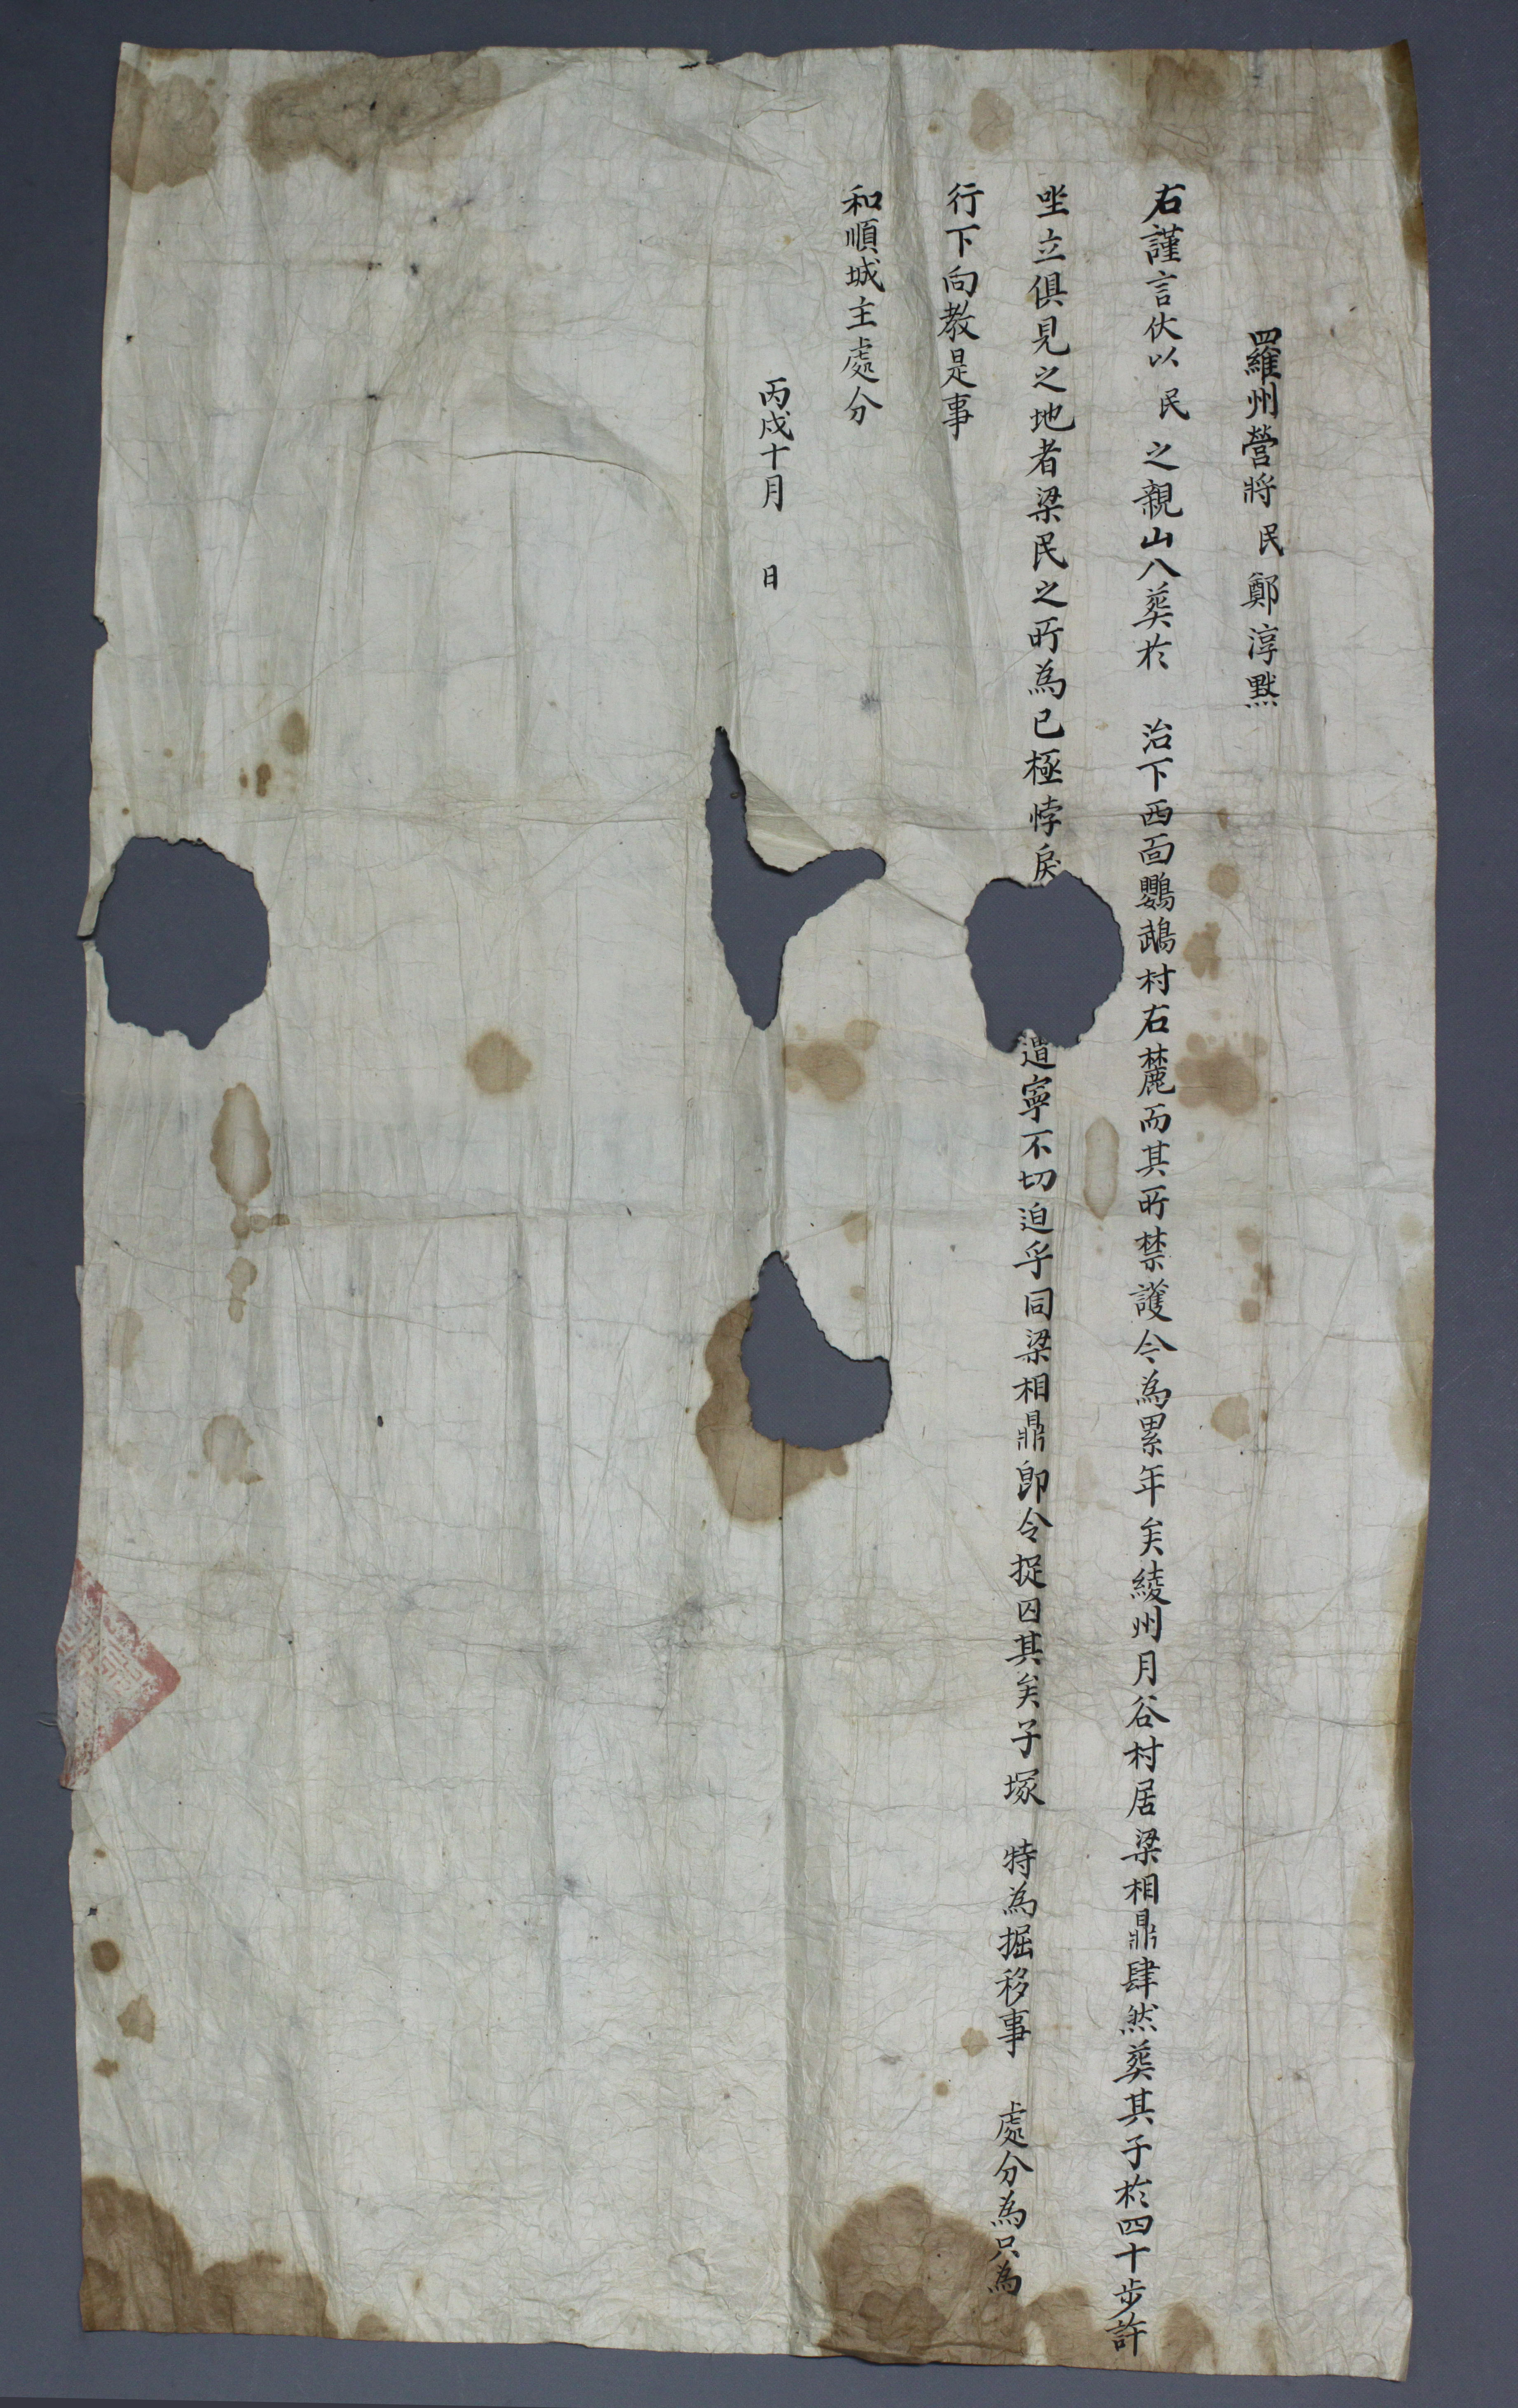 羅州營將民鄭淳默
右謹言伏以民之親山入葬於 治下西面鸚鵡村右麓而其所禁護今為累年矣綾州月谷村居梁相鼎肆然葬其子於四十步許
坐立俱見之地者梁民之所為已極悖戾 遭寧不切迫乎同梁相鼎卽令捉囚其矣子塚 特為掘移事 處分為只為
行下向敎是事
和順城主處分
丙戌十月 日